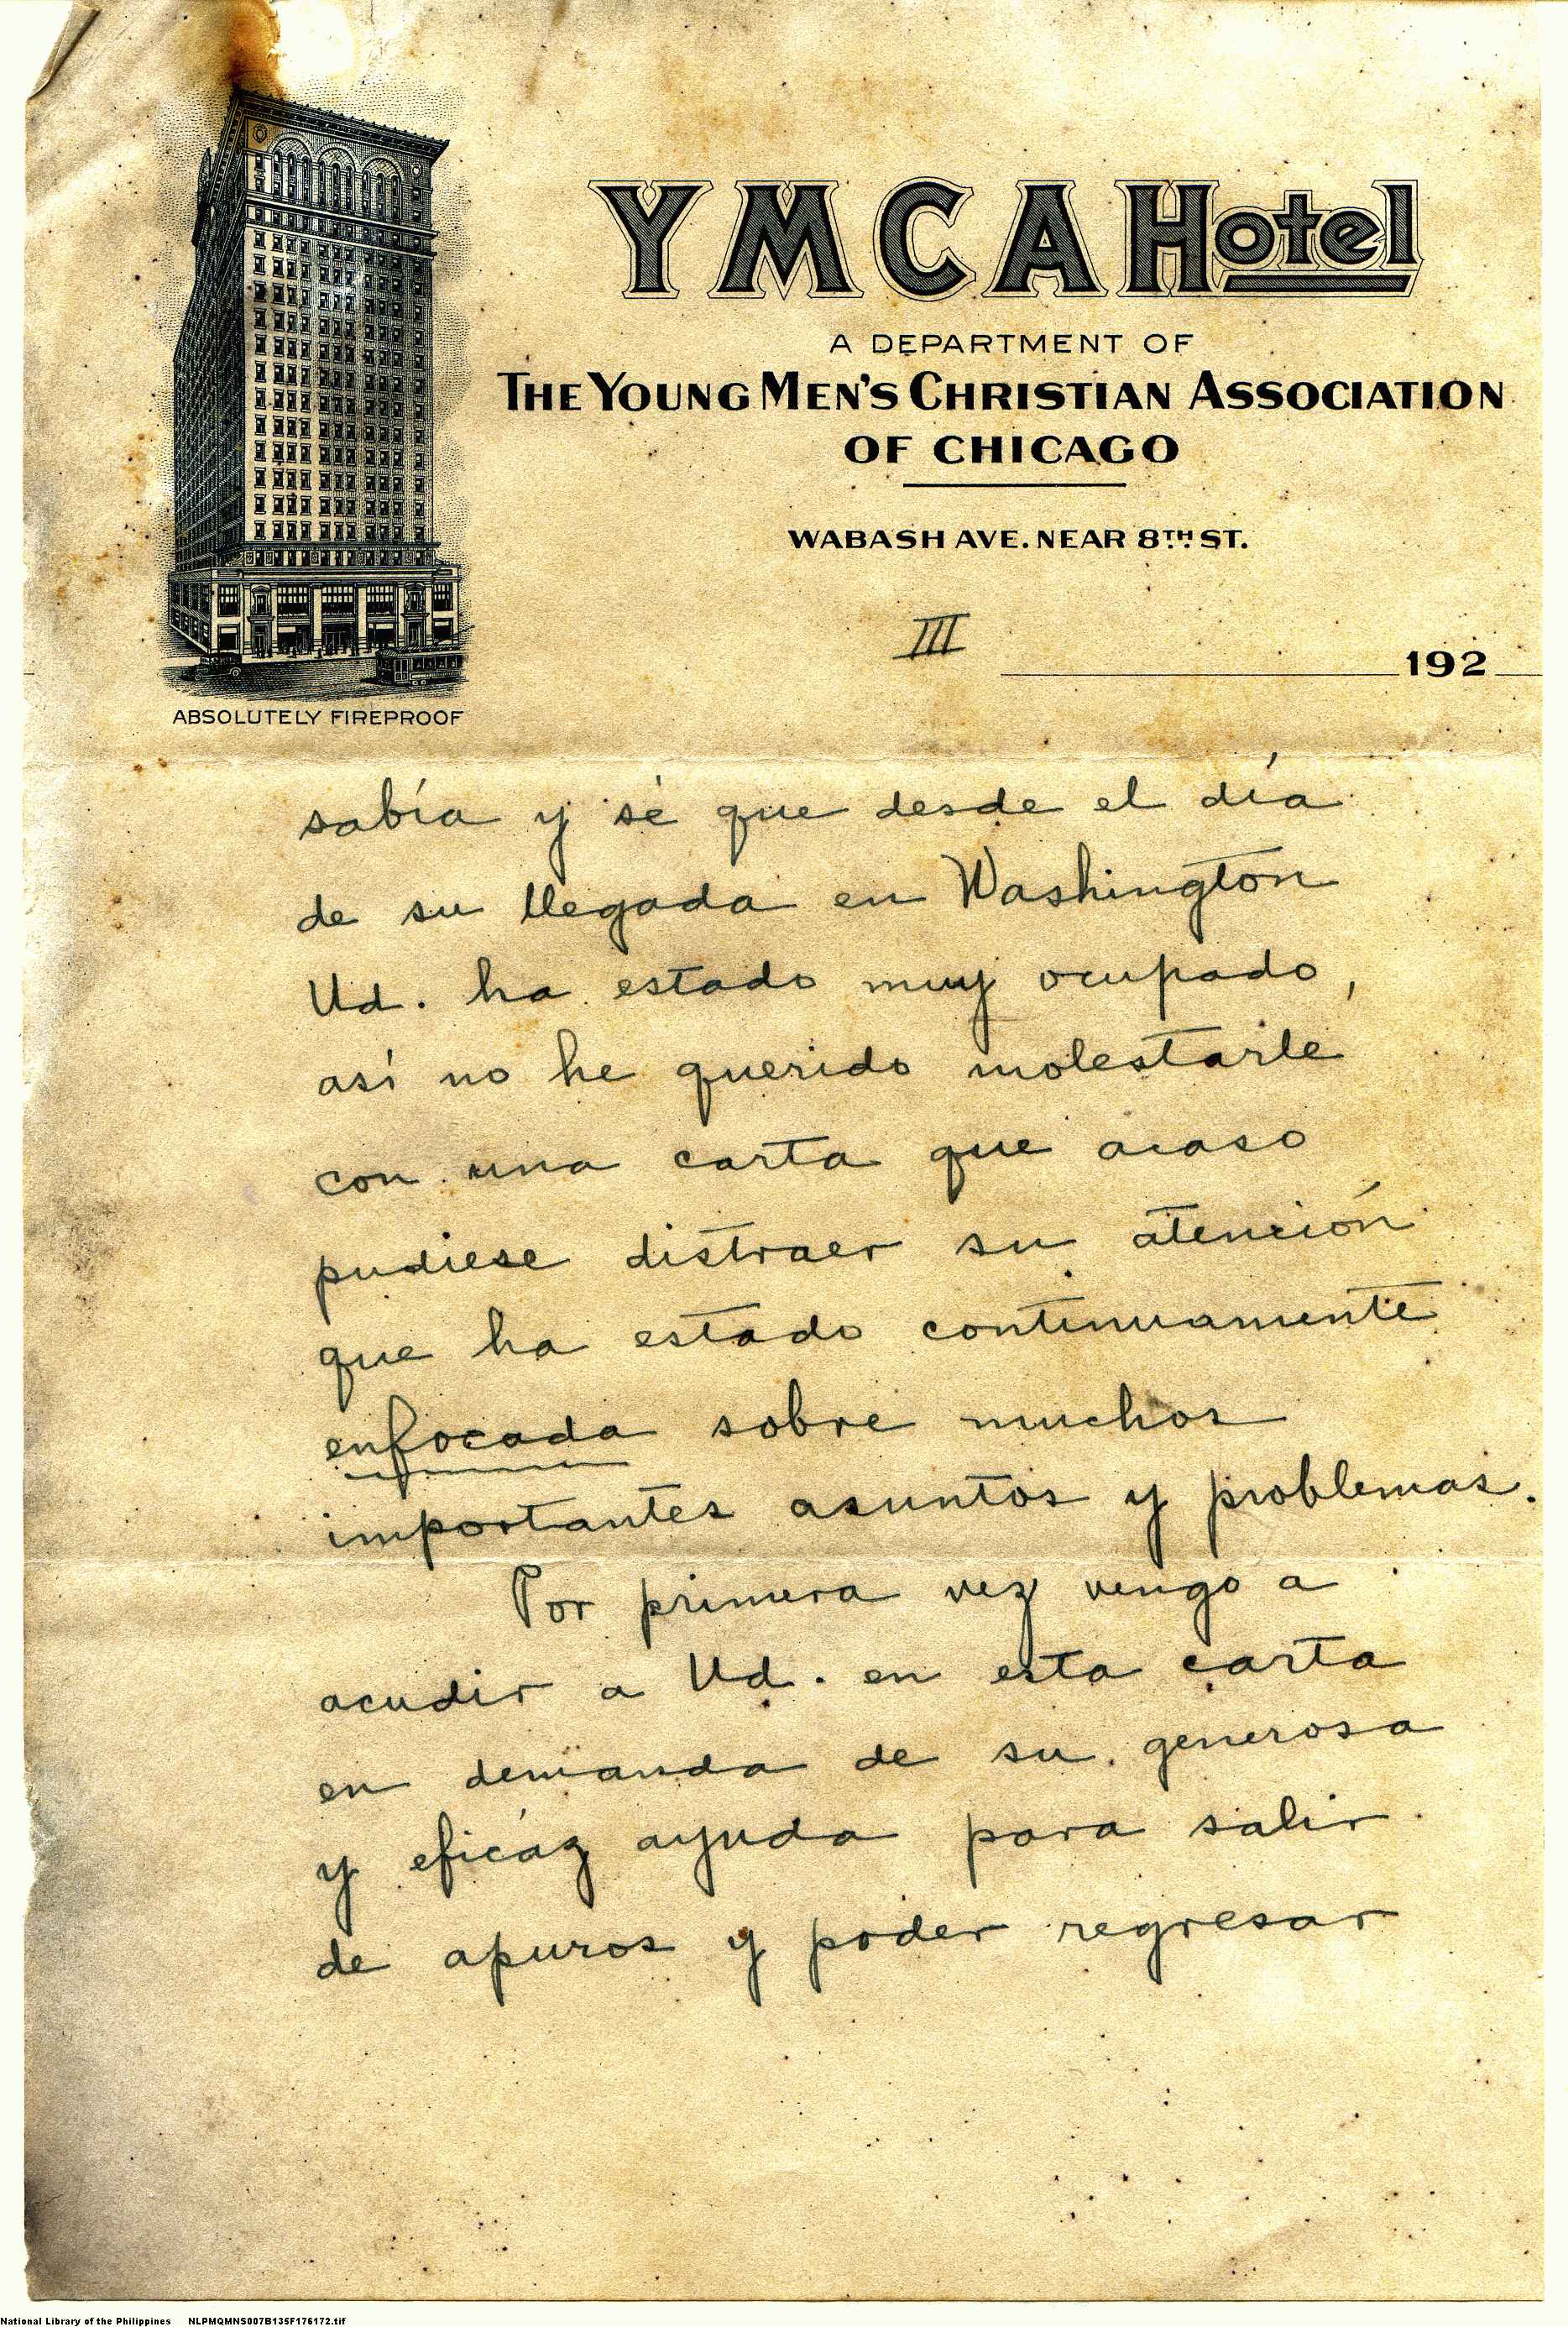 YMCA Hotel
A DEPARTMENT OF
THE YOUNG MEN'S CHRISTIAN ASSOCIATION
OF CHICAGO
WABASH AVE. NEAR 8TH ST.
III
192
ABSOLUTELY FIREPROOF
sabía y sé que desde el día
de su llegada en Washington
Ud. ha estado muy ocupado,
así no he querido molestarle
con una carta que acaso
pudiese distraer su atención
que ha estado continuamente
enfocada sobre muchos
importantes asuntos y problemas.
Por primera vez vengo a
acudir a Ud. en esta carta
en demanda de su generosa
y eficáz ayuda para salir
de apuros y poder regresar
National Library of the Philippines NLPMQMNS007B135F176172.tif